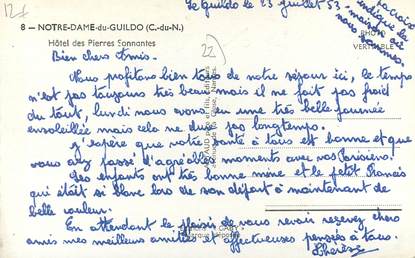 12f
Le Guildo le 23 juillet 53
8 — NOTRE-DAME-du-GUILDO (C.-du-N.)
Hôtel des Pierres Sonnantes
la croix
indique la
maison où
nous sommes.
PHOTO
VERITABLE
22
Bien chers Amis.
Nous profitons bien tous de notre séjour ici, le temps
n'est pas toujours très beau mais il ne fait pas froid
du tout, lundi nous avons eu une très belle journée
ensoleillée mais cela ne dure pas longtemps.
J'espère que votre santé à tous est bonne et que
vous avez passé d'agréables moments avec vos Parisiens.
Les enfants ont très bonne mine et le petit Francis
qui était si blanc lors de son départ a maintenant de
belle couleur.
En attendant le plaisir de vous revoir recevez chers
amis mes meilleurs amitiés et affectueuses pensées à tous.
Thérèse